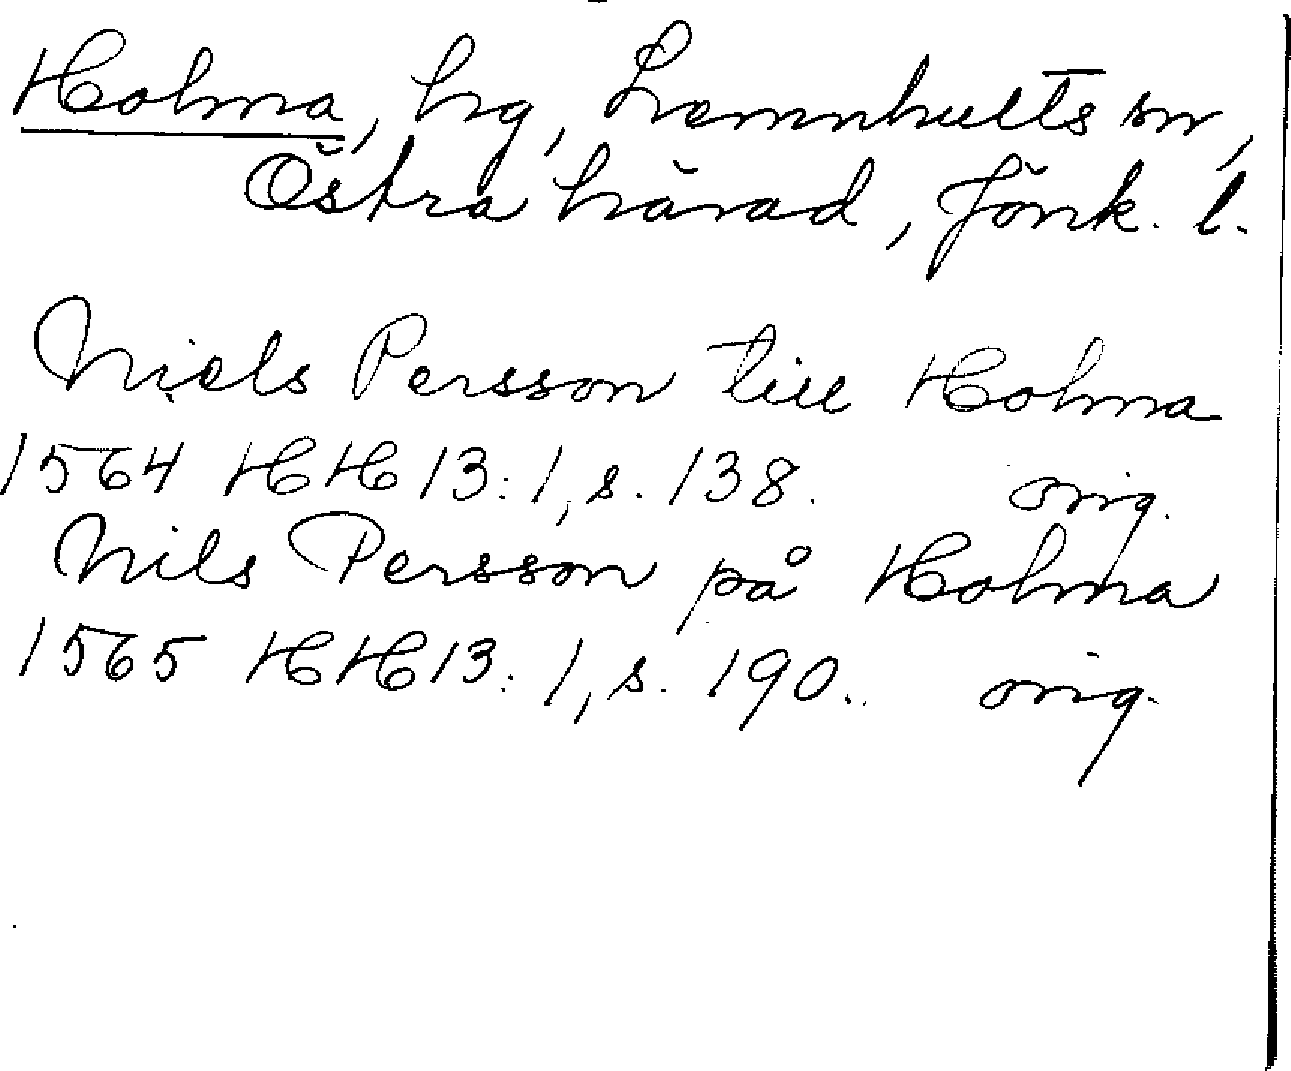 Holma, hg, Lemnhults sn,
Östra härad, Jönk. l.
Niels Persson till Holma
1564 HH 13:1, s. 138. orig.
Nils Persson på Holma
1565 HH 13:1, s. 190. orig.